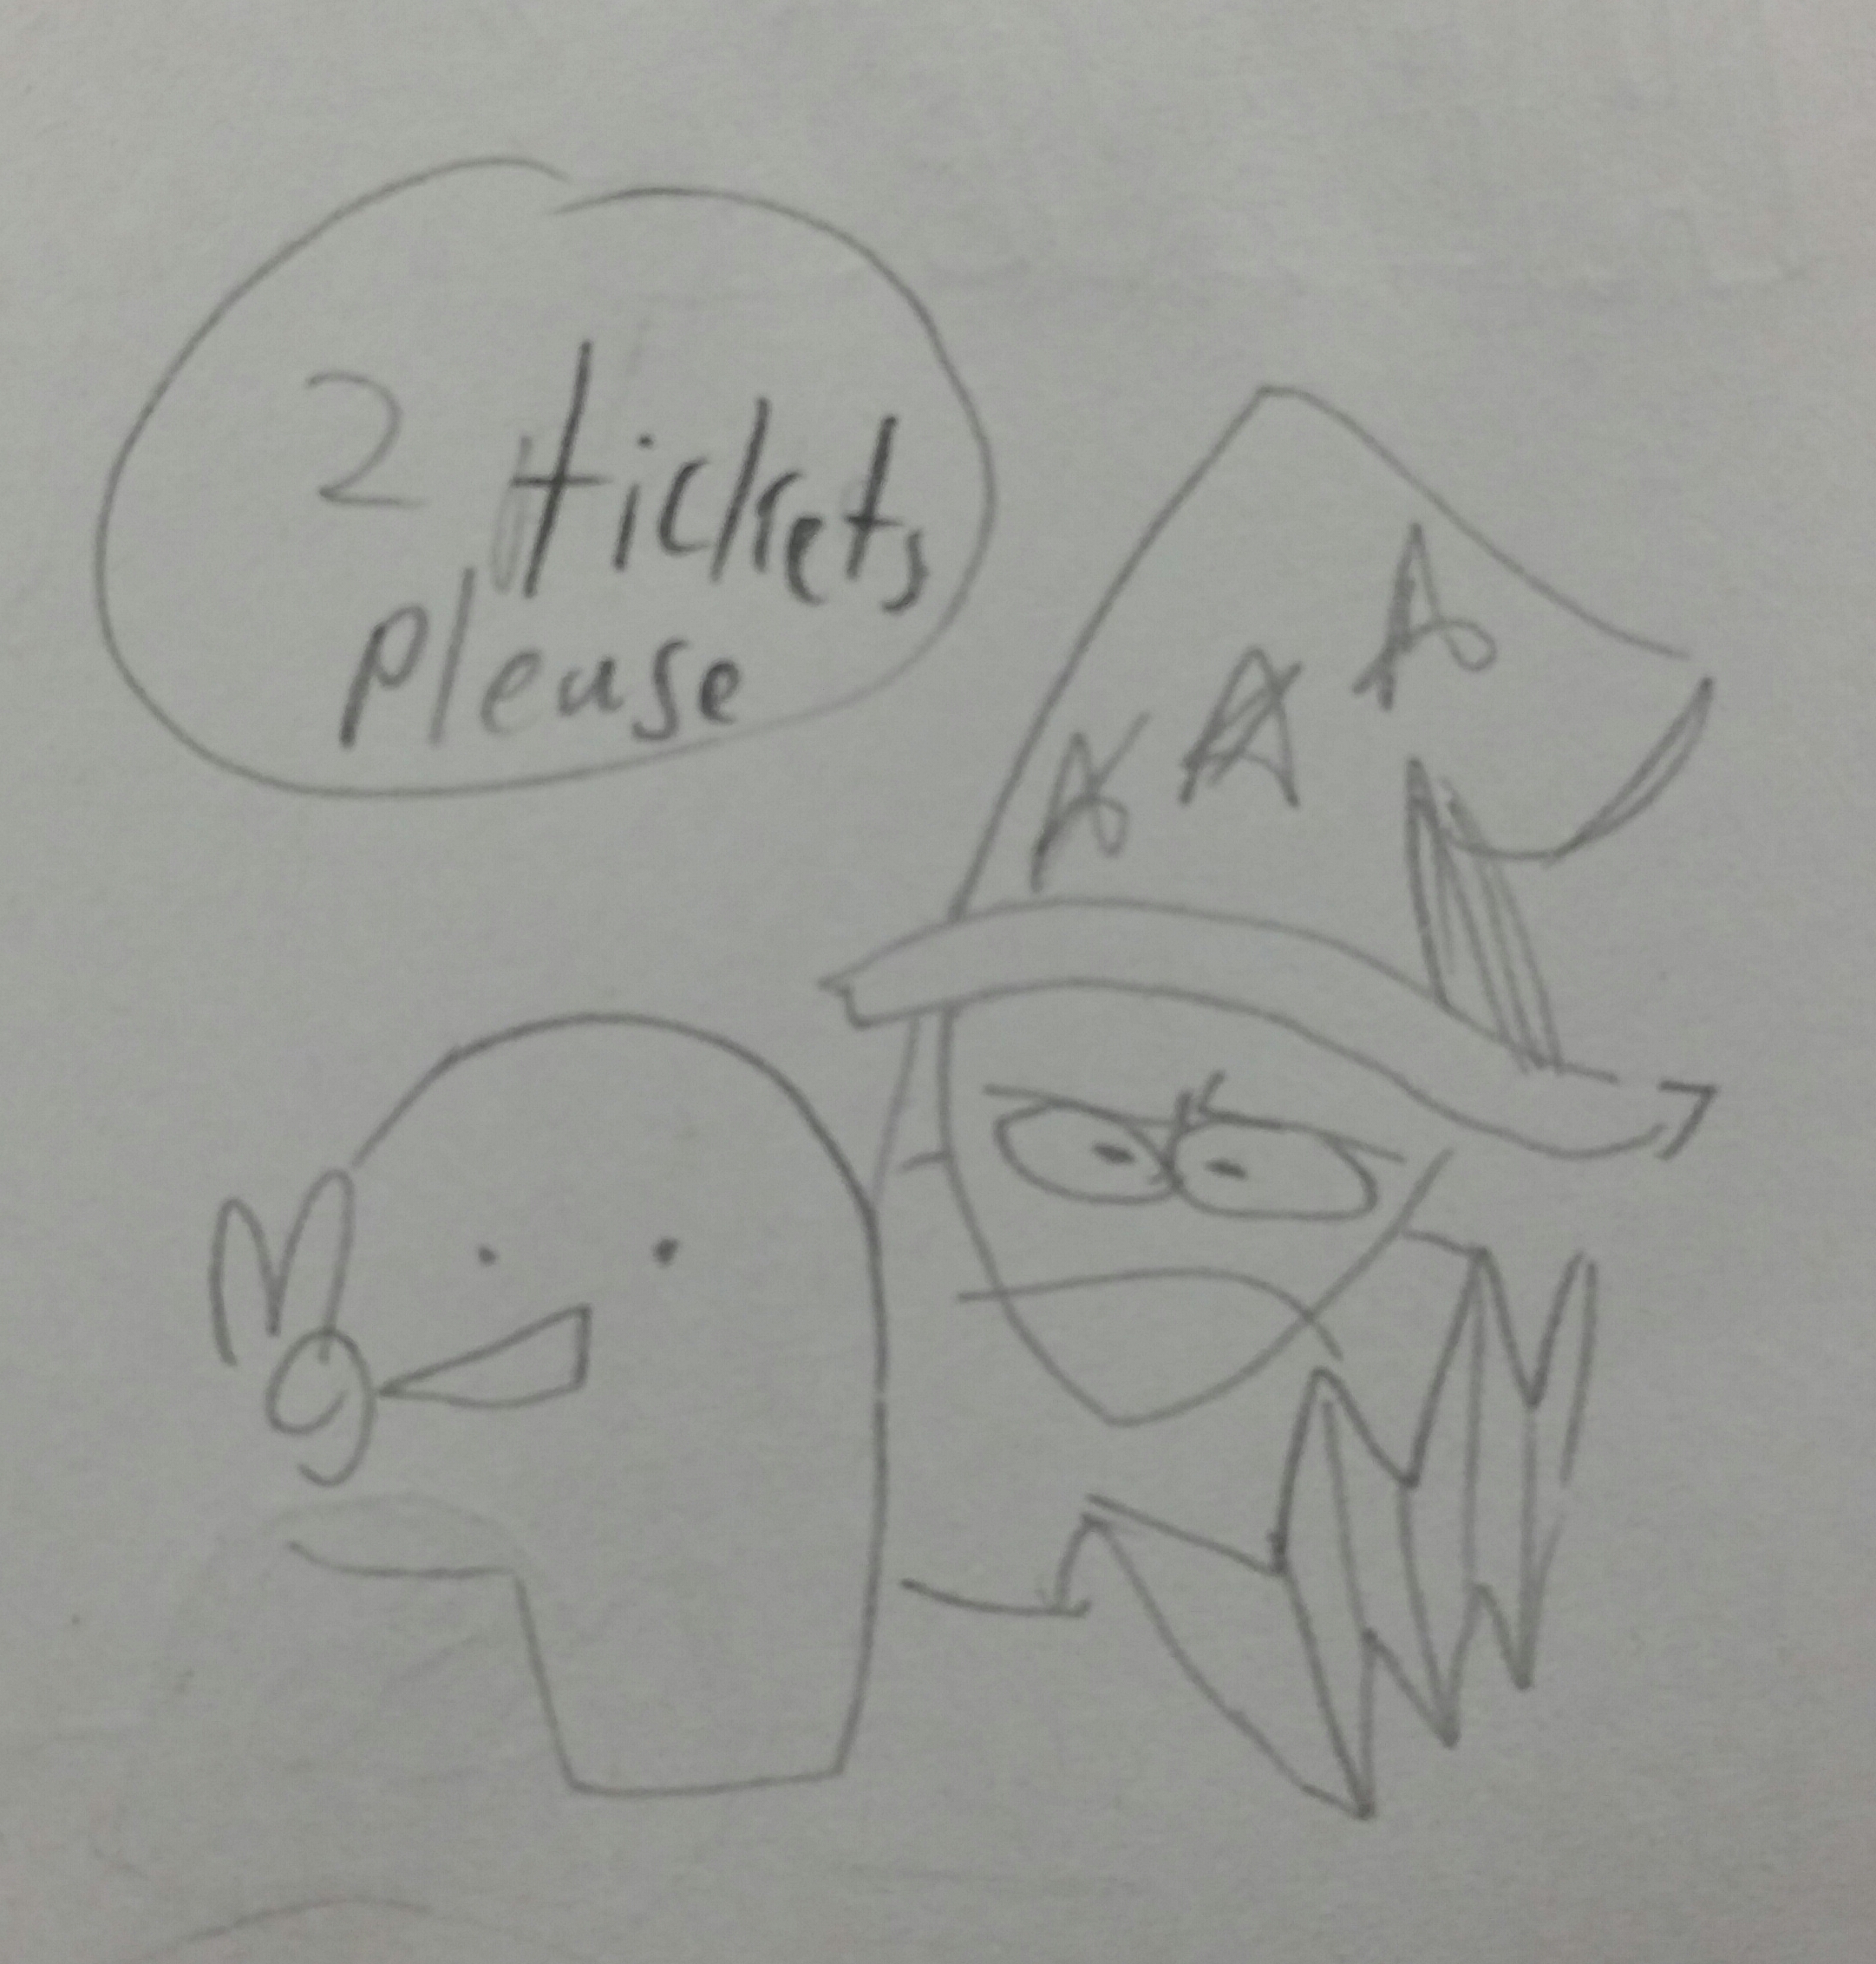 2 tickets
please